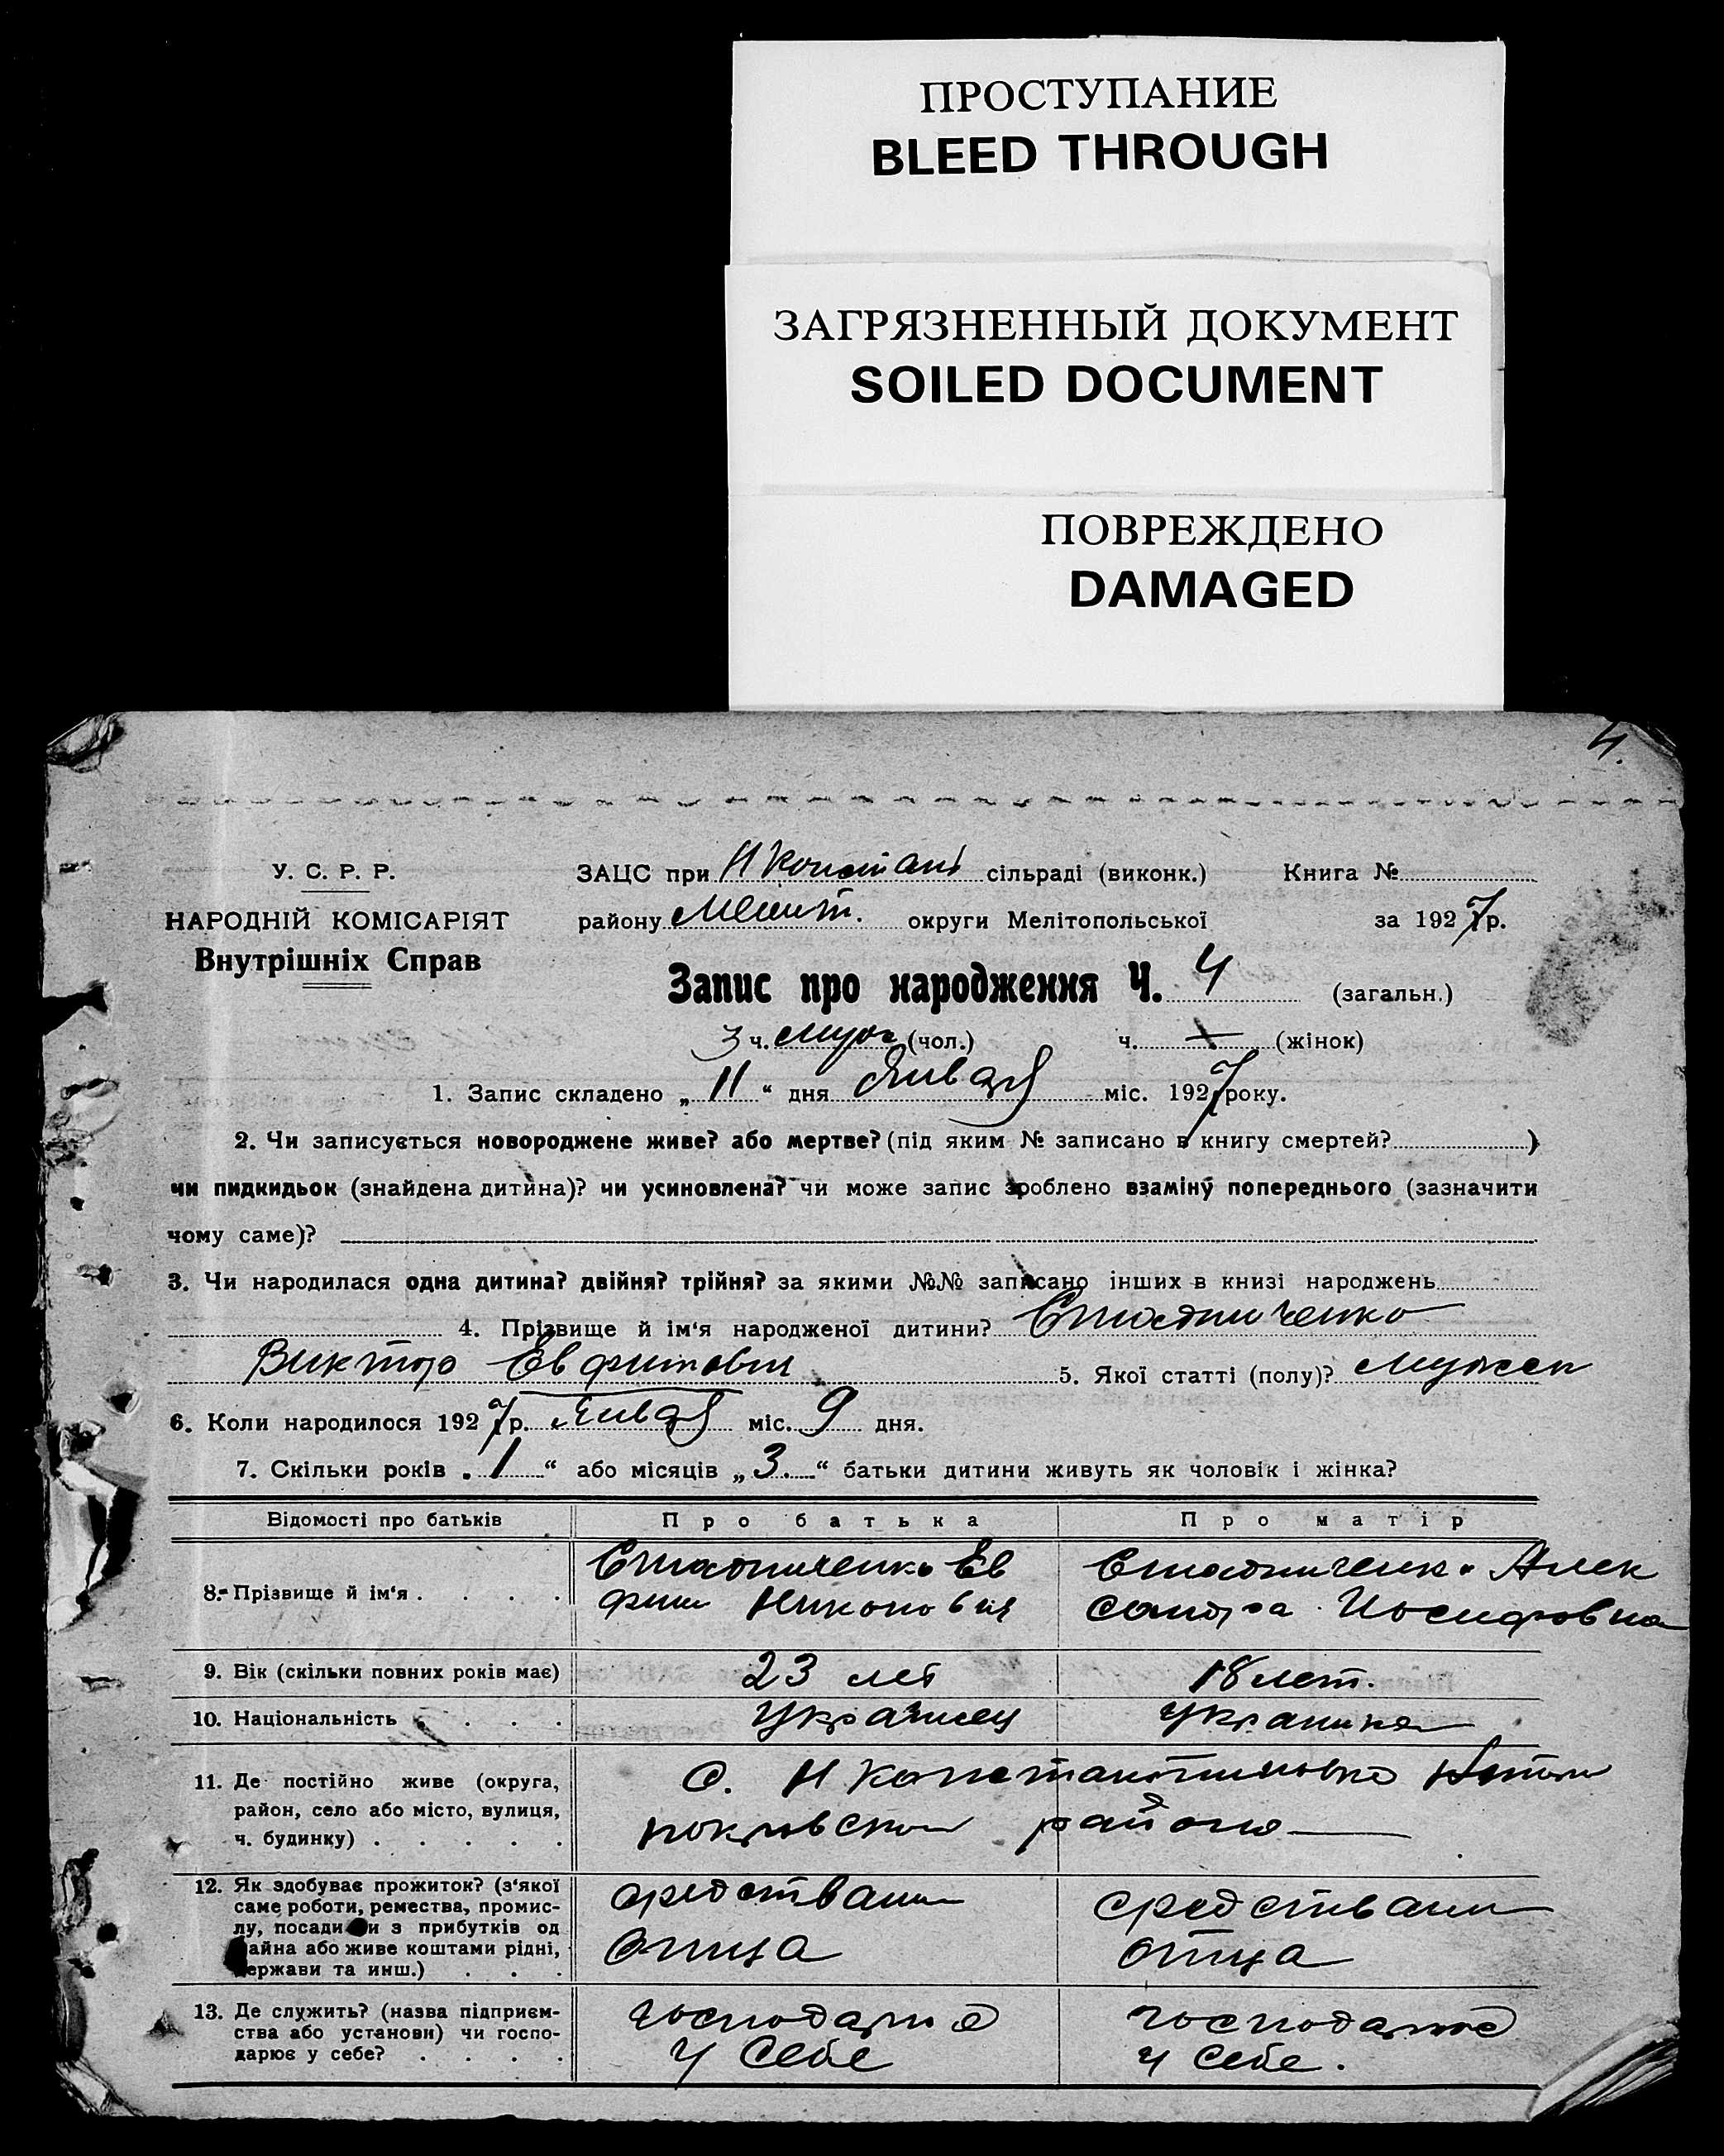 ПРОСТУПАНИЕ
BLEED THROUGH
ЗАГРЯЗНЕННЫЙ ДОКУМЕНТ
SOILED DOCUMENT
ПОВРЕЖДЕНО
DAMAGED
4.
У. С. Р. Р.
НАРОДНІЙ КОМІСАРІЯТ
Внутрішніх Справ
ЗАЦС при Н Констант сільраді (виконк.) Книга №
району Мелит. округи Мелітопольської за 1927 р.
Запис про народження Ч. 4 (загальн.)
3 ч. муж (чол.) ч. (жінок)
1. Запис складено „ 11 “ дня Января міс. 1927 року.
2. Чи записується новороджене живе? або мертве? (під яким № записано в книгу смертей? )
чи пидкидьок (знайдена дитина)? чи усиновлена? чи може запис зроблено взаміну попереднього (зазначити
чому саме)?
3. Чи народилася одна дитина? двійня? трійня? за якими №№ записано інших в книзі народжень
4. Прізвище й ім'я народженої дитини?
Виктор 5. Якої статті (полу)? мужск
6. Коли народилося 1927 р. Января міс. 9 дня.
7. Скільки років „ 1 “ або місяців „ 3 “ батьки дитини живуть як чоловік і жінка?
Відомості про батьків Про батька Про матір
8. Прізвище й ім'я . . . . Ев Алек
фим Никонович сандра Иосифовна
9. Вік (скільки повних років має) 23 лет 18 лет.
10. Національність . . . . Украинец Украинка
11. Де постійно живе (округа,
район, село або місто, вулиця,
ч. будинку) . . . . .
С. Н Константиновка
покровского района
12. Як здобуває прожиток? (з'якої
саме роботи, ремества, промис-
лу, посади чи з прибутків од
майна або живе коштами рідні,
держави та инш.) . . .
средствами
отца
средствами
отца
13. Де служить? (назва підприєм-
ства або установи) чи госпо-
дарює у себе? . . . .
господарює
у себе
господарює
у себе.